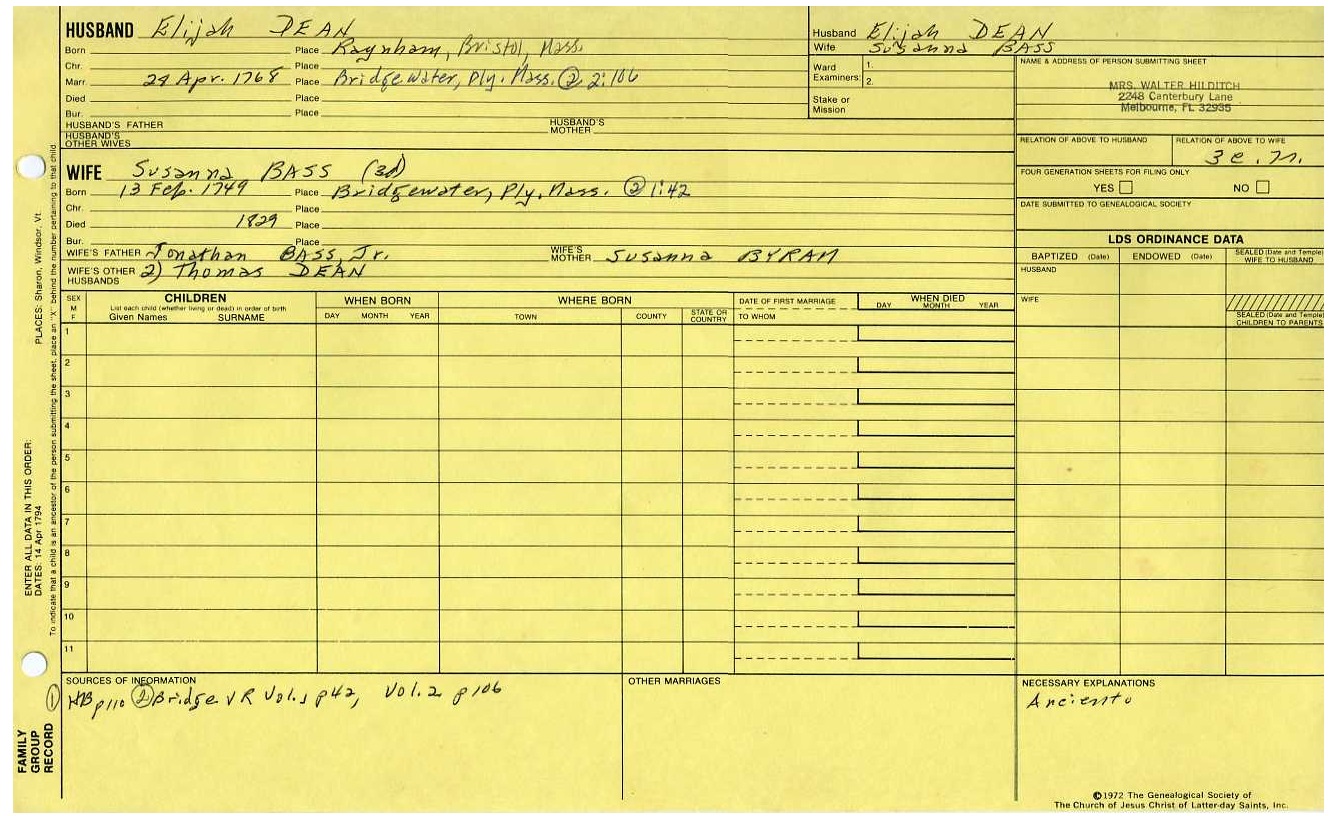 HUSBAND Elijah DEAN
Born Place Raynham, Bristol, Mass.
Chr. Place
Marr. 28 Apr. 1768 Place Bridgewater, Ply. Mass. ② 2:106
Died Place
Bur. Place
HUSBAND'S FATHER HUSBAND'S MOTHER
HUSBAND'S OTHER WIVES
Husband Elijah DEAN
Wife Susanna BASS
Ward Examiners: 1.
2.
Stake or Mission
NAME & ADDRESS OF PERSON SUBMITTING SHEET
MRS. WALTER HILDITCH
2248 Canterbury Lane
Melbourne, FL 32935
RELATION OF ABOVE TO HUSBAND RELATION OF ABOVE TO WIFE
3 c. r.
FOUR GENERATION SHEETS FOR FILING ONLY
YES NO
DATE SUBMITTED TO GENEALOGICAL SOCIETY
WIFE Susanna BASS (3d)
Born 13 Feb. 1749 Place Bridgewater, Ply. Mass. ② 1:42
Chr. Place
Died 1829 Place
Bur. Place
WIFE'S FATHER Jonathan BASS, Jr. WIFE'S MOTHER Susanna BYRAM
WIFE'S OTHER HUSBANDS 2) Thomas DEAN
LDS ORDINANCE DATA
BAPTIZED (Date) ENDOWED (Date) SEALED (Date and Temple) WIFE TO HUSBAND
HUSBAND
WIFE
SEALED (Date and Temple) CHILDREN TO PARENTS
SEX M F
CHILDREN
List each child (whether living or dead) in order of birth
Given Names SURNAME
WHEN BORN
DAY MONTH YEAR
WHERE BORN
TOWN COUNTY STATE OR COUNTRY
DATE OF FIRST MARRIAGE
TO WHOM
WHEN DIED
DAY MONTH YEAR
1
2
3
4
5
6
7
8
9
10
11
SOURCES OF INFORMATION
① HB p110 ② Bridge VR Vol. 1 p42, Vol. 2 p106
OTHER MARRIAGES
NECESSARY EXPLANATIONS
FAMILY GROUP RECORD
ENTER ALL DATA IN THIS ORDER:
DATES: 14 Apr 1794
PLACES: Sharon, Windsor, Vt.
To indicate that a child is an ancestor of the person submitting the sheet, place an "X" behind the number pertaining to that child.
©1972 The Genealogical Society of
The Church of Jesus Christ of Latter-day Saints, Inc.